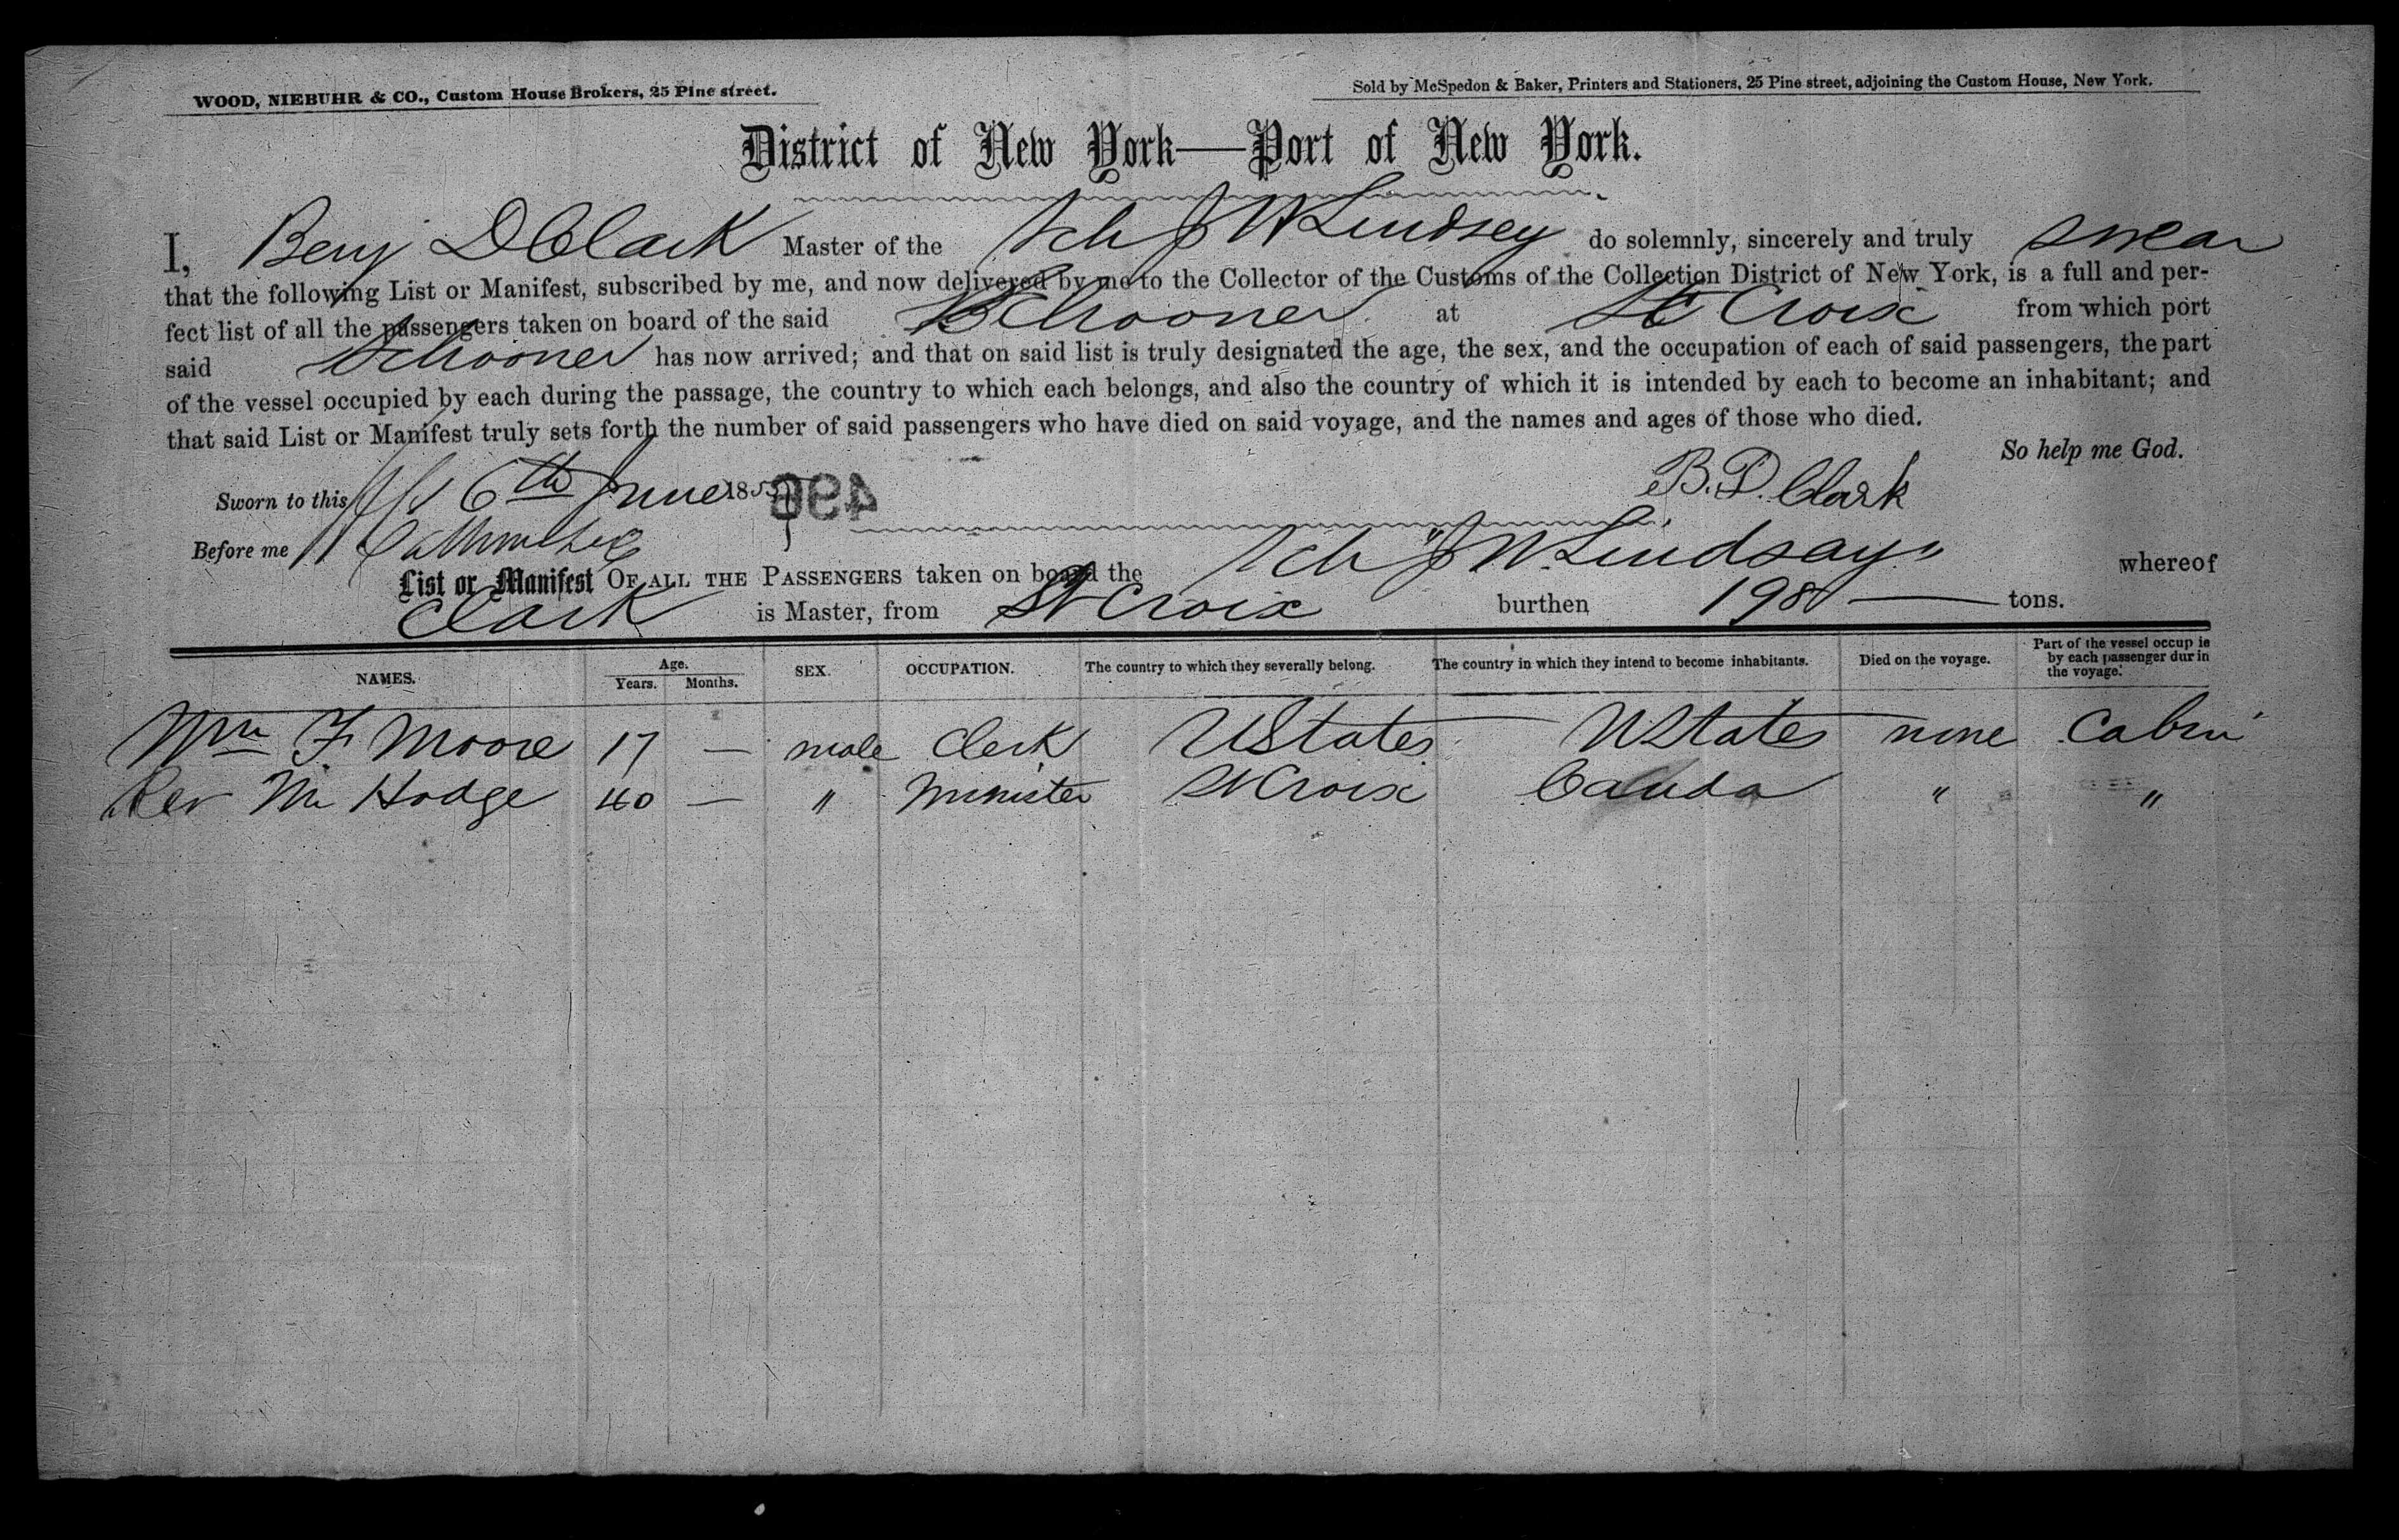 WOOD, NIEBUHR & CO., Custom House Brokers, 25 Pine street.
Sold by McSpedon & Baker, Printers and Stationers, 25 Pine street, adjoining the Custom House, New York.
District of New York—Port of New York.
I, Benj D Clark Master of the Sch J W Lindsey do solemnly, sincerely and truly swear
that the following List or Manifest, subscribed by me, and now delivered by me to the Collector of the Customs of the Collection District of New York, is a full and per-
fect list of all the passengers taken on board of the said Schooner at St Croix from which port
said Schooner has now arrived; and that on said list is truly designated the age, the sex, and the occupation of each of said passengers, the part
of the vessel occupied by each during the passage, the country to which each belongs, and also the country of which it is intended by each to become an inhabitant; and
that said List or Manifest truly sets forth the number of said passengers who have died on said voyage, and the names and ages of those who died.
So help me God.
Sworn to this 6th June 185 496 B. D. Clark
Before me
List or Manifest OF ALL THE PASSENGERS taken on board the Sch "J W. Lindsay" whereof
Clark is Master, from St Croix burthen 198 — tons.
NAMES. Age. Years. Months. SEX. OCCUPATION. The country to which they severally belong. The country in which they intend to become inhabitants. Died on the voyage. Part of the vessel occup ie by each passenger dur in the voyage.
Wm F. Moore 17 — male Clerk UStates UStates none Cabin
Rev Mr Hodge 40 — " Minister St Croix Canada " "